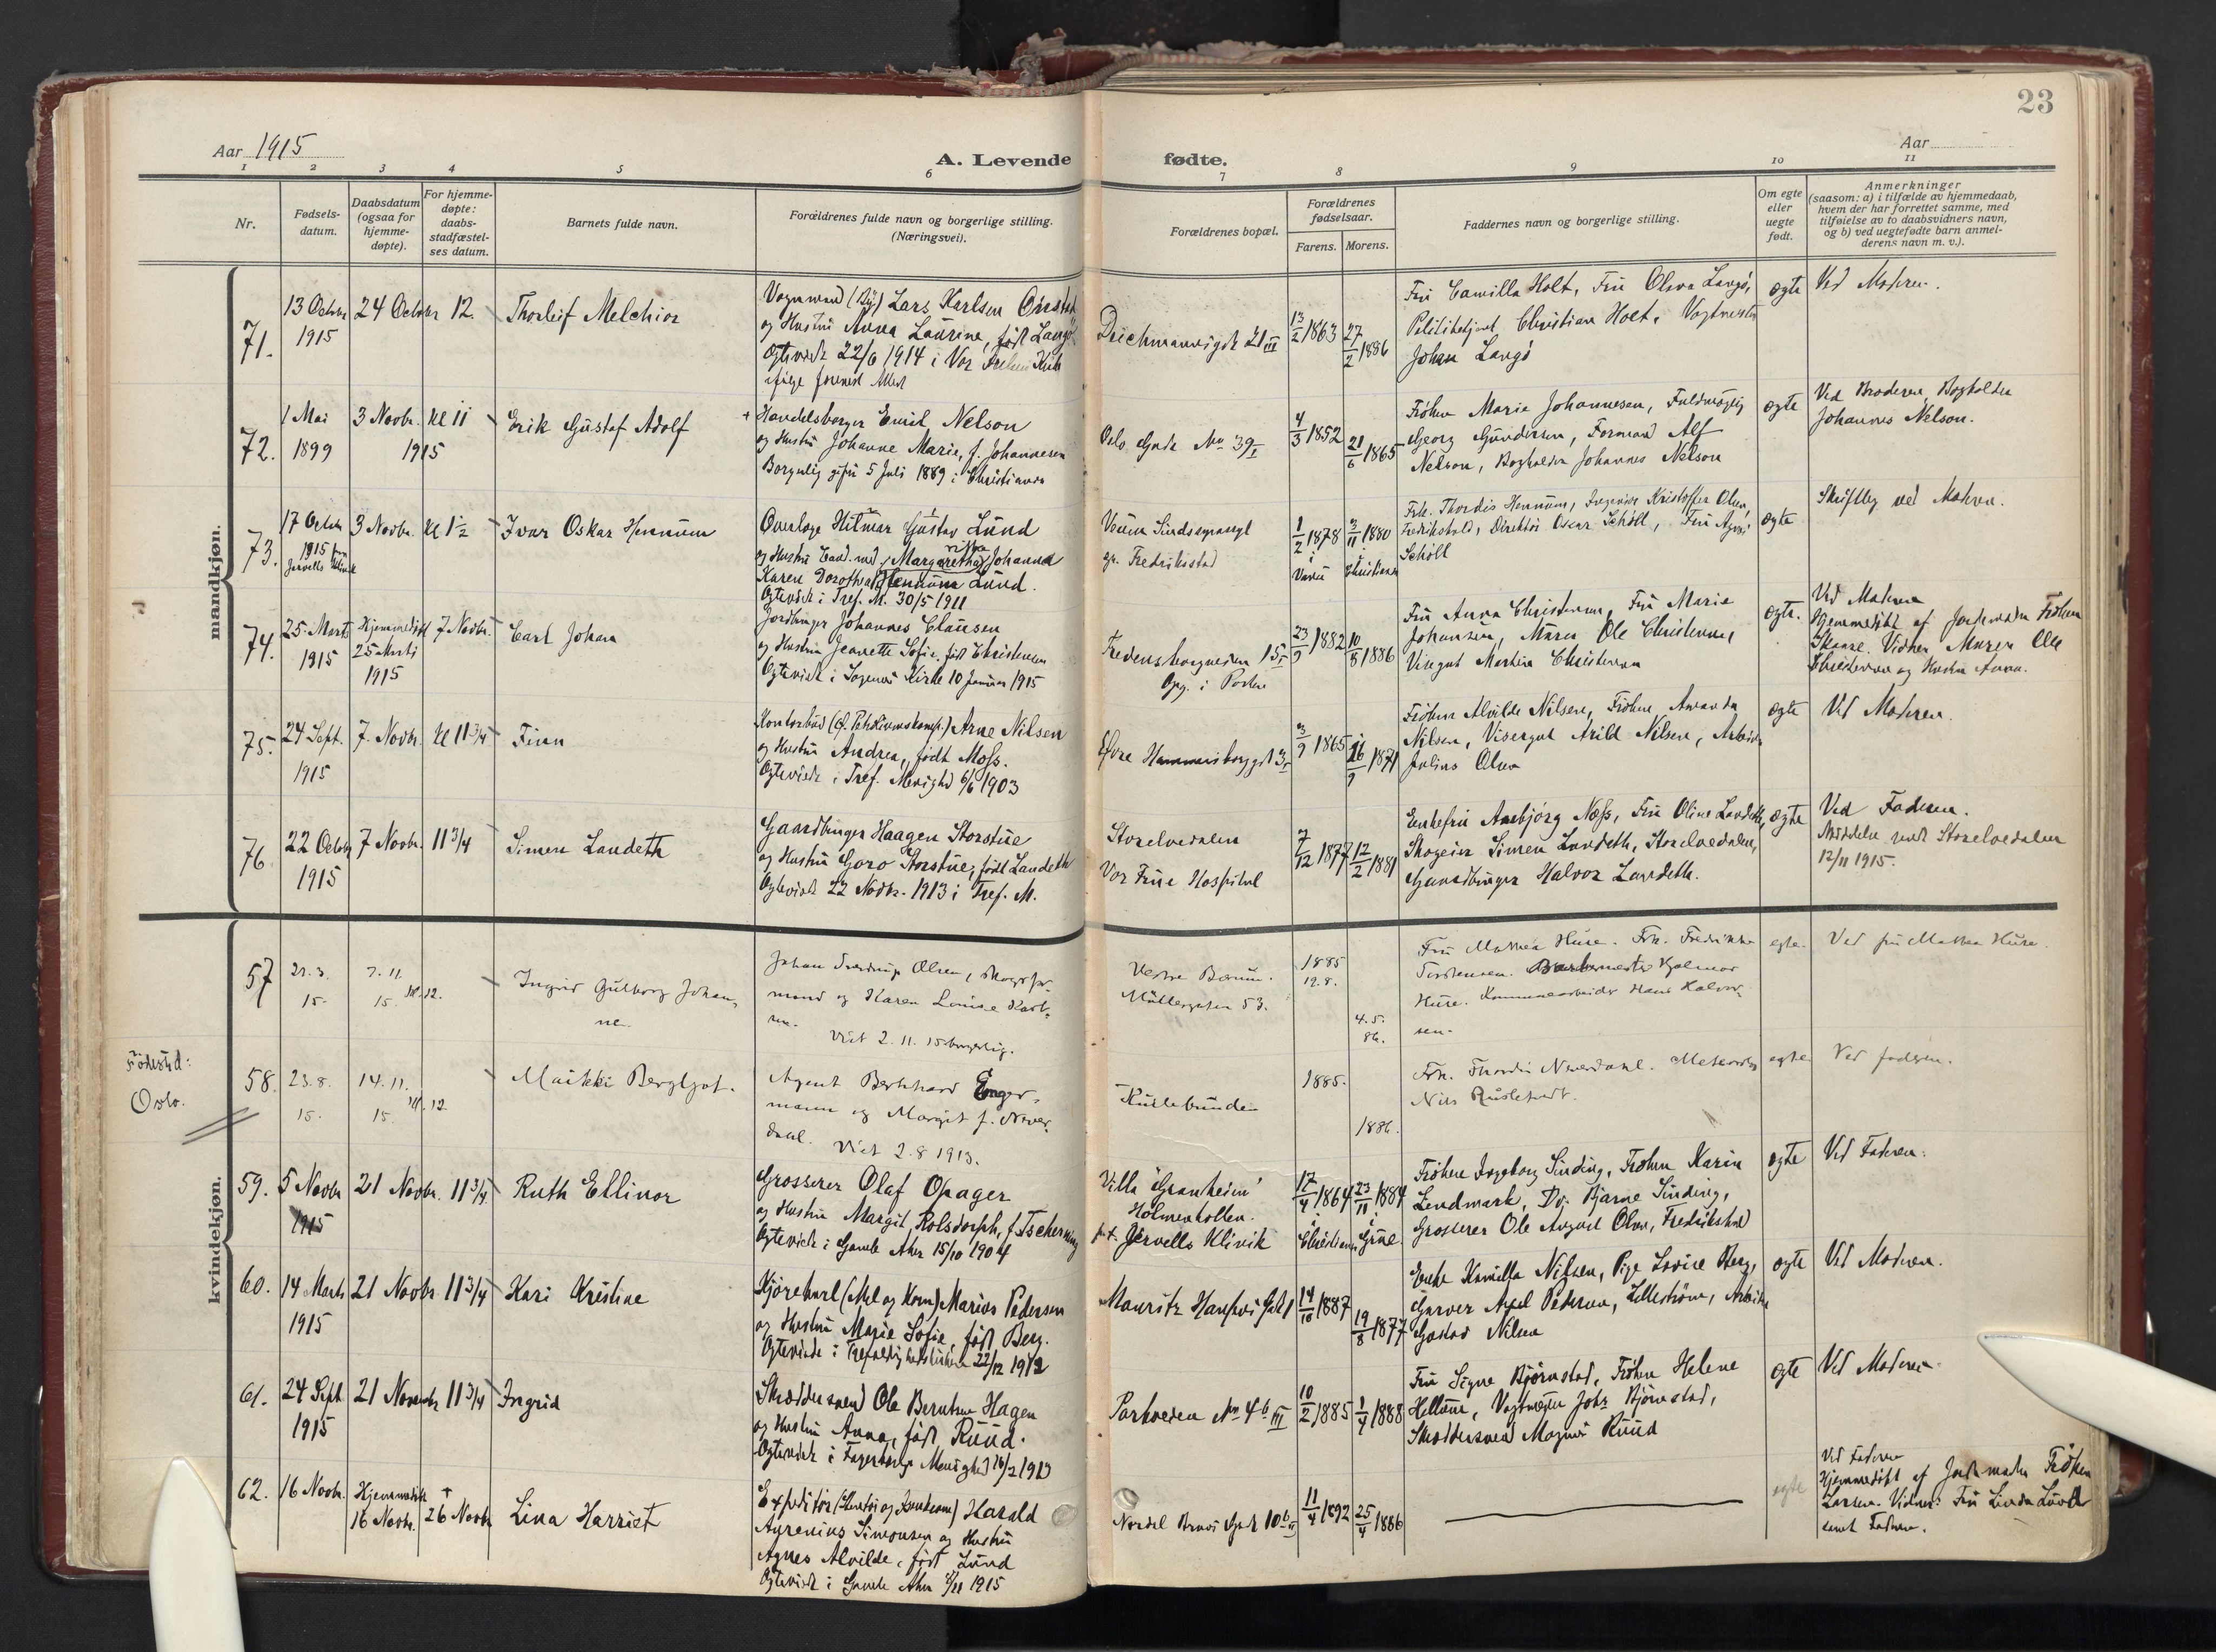 23
Aar 1915
A. Levende
fødte.
Aar
1 2 3 4 5 6 7 8 9 10 11
Nr.
Fødsels-
datum.
Daabsdatum
(ogsaa for
hjemme-
døpte).
For hjemme-
døpte:
daabs-
stadfæstel-
ses datum.
Barnets fulde navn.
Forældrenes fulde navn og borgerlige stilling.
(Næringsvei).
Forældrenes bopæl.
Forældrenes
fødselsaar.
Farens. Morens.
Faddernes navn og borgerlige stilling.
Om egte
eller
uegte
født.
Anmerkninger
(saasom: a) i tilfælde av hjemmedaab,
hvem der har forrettet samme, med
tilføielse av to daabsvidners navn,
og b) ved uegtefødte barn anmel-
derens navn m. v.).
mandkjøn.
71.
13 Octobr
1915
24 Octobr 12.
Thorleif Melchior
Vognmand (By) Lars Karlsen
og Hustru Anna Laurine, født
Ogteviede 22/6 1914 i Vor Frelsers Kirke
ifølge forevist Attest
Deichmannsgdt 21 III
13/2 1863
27/2 1886
Fru Camilla Holt, Fru Olava Langø,
Politibetjent Christian Holt,
Johan Langø
ogte
Ved Moderen.
72.
1 Mai
1899
3 Novbr. Kl 11
1915
Erik Gustaf Adolf
+ Handelsborger Emil Nelson
og Hustru Johanne Marie, f. Johannesen
Borgerlig gifte 5 Juli 1889 i Christiania
Oslo Gade No 39 I
4/3 1852
21/6 1865
Frøken Marie Johannesen, Fuldmægtig
Georg Gundersen, Formand Alf
Nelson, Bogholder Johannes Nelson
ogte
Ved Broderen, Bogholder
Johannes Nelson.
73.
17 Octobr
1915
3 Novbr. Kl 1½
Ivar Oskar Hennum
Overlæge Hilmar Gustav Lund
og Hustru Cand. med. Margaretha Johanna
Karen Dorothea Hennum Lund.
Ogteviede i Tref. M. 30/5 1911
Veum Sindssygeasyl
pr. Fredrikstad
1/2 1878
3/11 1880
i
Christiania
Frk. Thordis Hennum, Ingeniør Kristoffer Olsen,
Fredrikshald, Direktør Oscar Schøll, Fru Agnes
Schøll
ogte
Skriftlig ved Moderen.
74.
25 Marts
1915
Hjemmedøbt
25 Marts
1915
7 Novbr.
Carl Johan
Jordbruger Johannes Clausen
og Hustru Jeanette Sofie, født Christensen
Ogteviede i Sagenes Kirke 10 Januar 1915
Fredensborgveien 15 I
Opg. i Porten
23/9 1882
10/8 1886
Fru Anna Christensen, Fru Marie
Johansen, Murer Ole Christensen,
Visegut Martin Christensen
ogte.
Ved Moderen
Hjemmedøbt af Jordemoder Frøken
Skaare. Vidner Murer Ole
Christensen og Hustru Anna.
75.
24 Sept.
1915
7. Novbr. Kl 11 3/4
Finn
Kontorbud Arne Nilsen
og Hustru Andrea, født Moss.
Ogteviede i Tref. Menighed 6/6 1903
Øvre Hammersborggt 3 I
3/9 1865
16/9 1871
Frøken Alvilde Nilsen, Frøken Amanda
Nilsen, Visergut Arild Nilsen, Arbeider
Julius Olsen
ogte
Ved Moderen.
76
22 Octobr
1915
7 Novbr. 11 3/4
Simen Landeth
Gaardbruger Haagen Storstue
og Hustru Goro Storstue, født Landeth
Ogteviede 22 Novbr. 1913 i Tref. M.
Storelvedalen
Vor Frue Hospital
7/12 1877
12/2 1881
Enkefru Anebjørg Næss, Fru Oline Landeth,
Skogeier Simen Landeth, Storelvedalen,
Gaardbruger Halvor Landeth.
ogte
Ved Faderen.
Meddelelse sendt Storelvedalen
12/11 1915.
kvindekjøn.
57
21.3.
15.
7.11.
15. kl. 12.
Ingrid Gulborg Johan-
ne.
Johan Olsen, skogsfor-
mand og Karen Louise Karl-
sen.
Viet 2.11.15 borgerlig.
Vestre Bærum.
Møllergaten 53.
1885
19.8.
4.5.
86.
Fru Mathea Huse. Frk. Fredrikke
Torstensen. Hjalmar
Huse. Kommunearbeider Hans Halvor-
sen.
egte.
Ved fru Mathea Huse.
Fødested:
Oslo.
58.
23.8.
15.
14.11.
15. kl. 12.
Maikki Bergljot.
Agent Bernhard Enger-
mann og Margit f. Never-
dahl.
Viet 2.8 1913.
1885.
1886.
Frk. Thordis Neverdahl.
Nils Rustebratt.
egte
Ved faderen.
59.
5 Novbr
1915
21 Novbr. 11 3/4
Ruth Ellinor
Grosserer Olaf Opager
og Hustru Margit Rolsdorph, f. Tscherning
Ogteviede i Gamle Aker 15/10 1904
Villa "Granheim"
Holmenkollen.
p.t. Jervells Klinik
17/4 1864
i
Christiania
23/11 1884
i
Grue
Frøken Ingeborg Sinding, Frøken Karin
Lendmark, Dr. Bjarne Sinding,
Grosserer Ole August Olsen, Fredrikshald
ogte
Ved Faderen.
60.
14 Marts
1915
21 Novbr 11 3/4
Kari Kristine
Kjørekarl (Mel og Korn) Marius Pedersen
og Hustru Marie Sofie, født Berg.
Ogteviede i Trefoldighedskirken 22/12 1912
Mauritz Hansens Gade 1
14/10 1887
19/8 1877
Enke Kamilla Nilsen, Pige Lovise Berg,
Garver Axel Pedersen, Lillestrøm, Arbeider
Gustav Nilsen
ogte
Ved Moderen.
61.
24 Sept
1915
21 Novembr 11 3/4
Ingrid
Skræddersvend Ole Berntsen Hagen
og Hustru Anna, født Ruud.
Ogteviede i Fagerborg Menighed 16/2 1913
Parkveien No 4 b III
10/2 1885
1/4 1888
Fru Signe Bjørnstad, Frøken Helene
Hellum, Vognmester Johs Bjørnstad,
Skræddersvend Magnus Ruud
ogte
Ved Moderen.
62.
16 Novbr.
Hjemmedøbt
16 Novbr.
+
26 Novbr
Lina Harriet
Expeditør Harald
Simonsen og Hustru
Agnes Alvilde, født Lund
Ogteviede i Gamle Aker 1915
Nordal Bruns Gade 10 b II
11/4 1892
25/4 1886
egte
Ved Faderen
Hjemmedøbt af Jordemoder Frøken
Larsen. Vidner: Fru Linda Lund
samt Faderen.